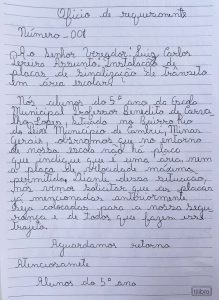 Ofício de requerimento
Número - 001
Ao Senhor Vereador: Luiz Carlos
Pereira Assunto: Instalação de
placas de sinalização de trânsito
em área escolar!
Nós alunos do 5º ano da Escola
Municipal Professor Benedito de
Lopes, situado no Bairro
do Município de Cambuí, Minas
Gerais, observamos que no entorno
de nossa escola não há placa
que indique que é uma área, nem
a placa de velocidade máxima
permitida. Diante dessa situação,
nós vimos solicitar que as placas
já mencionadas anteriormente
seja colocadas para a nossa segu
rança e de todos que fazem esse
trajeto.
Aguardamos retorno
Atenciosamente
Alunos do 5º ano
tilibra